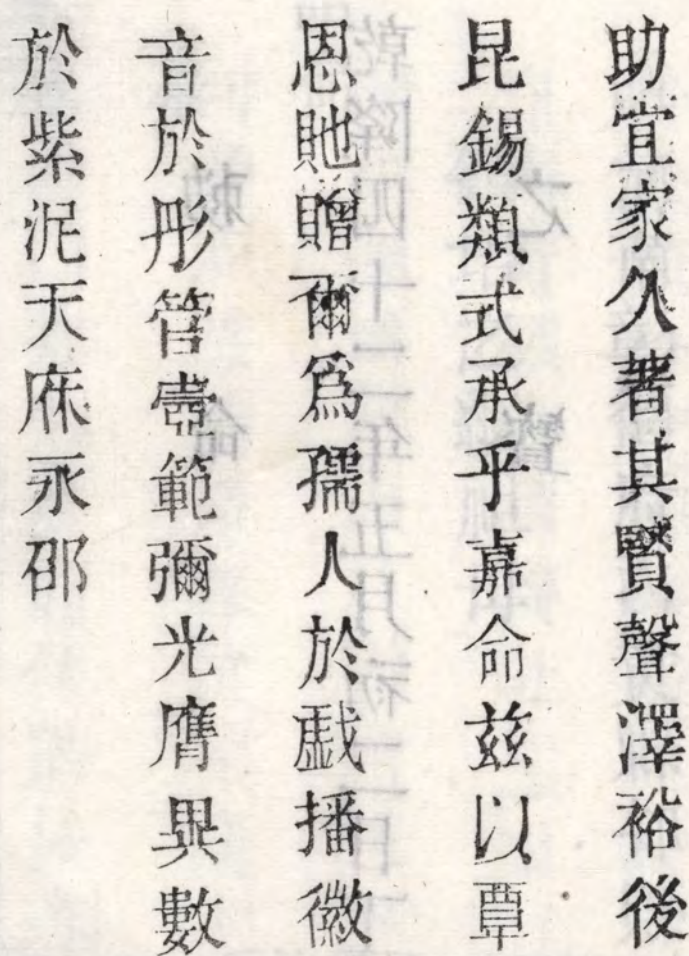 助宜家久著其賢聲澤裕後
昆錫類式承乎嘉命兹以覃
恩貤贈爾爲孺人於戲播徽
音於彤管壼範彌光膺異數
於紫泥天庥永邵